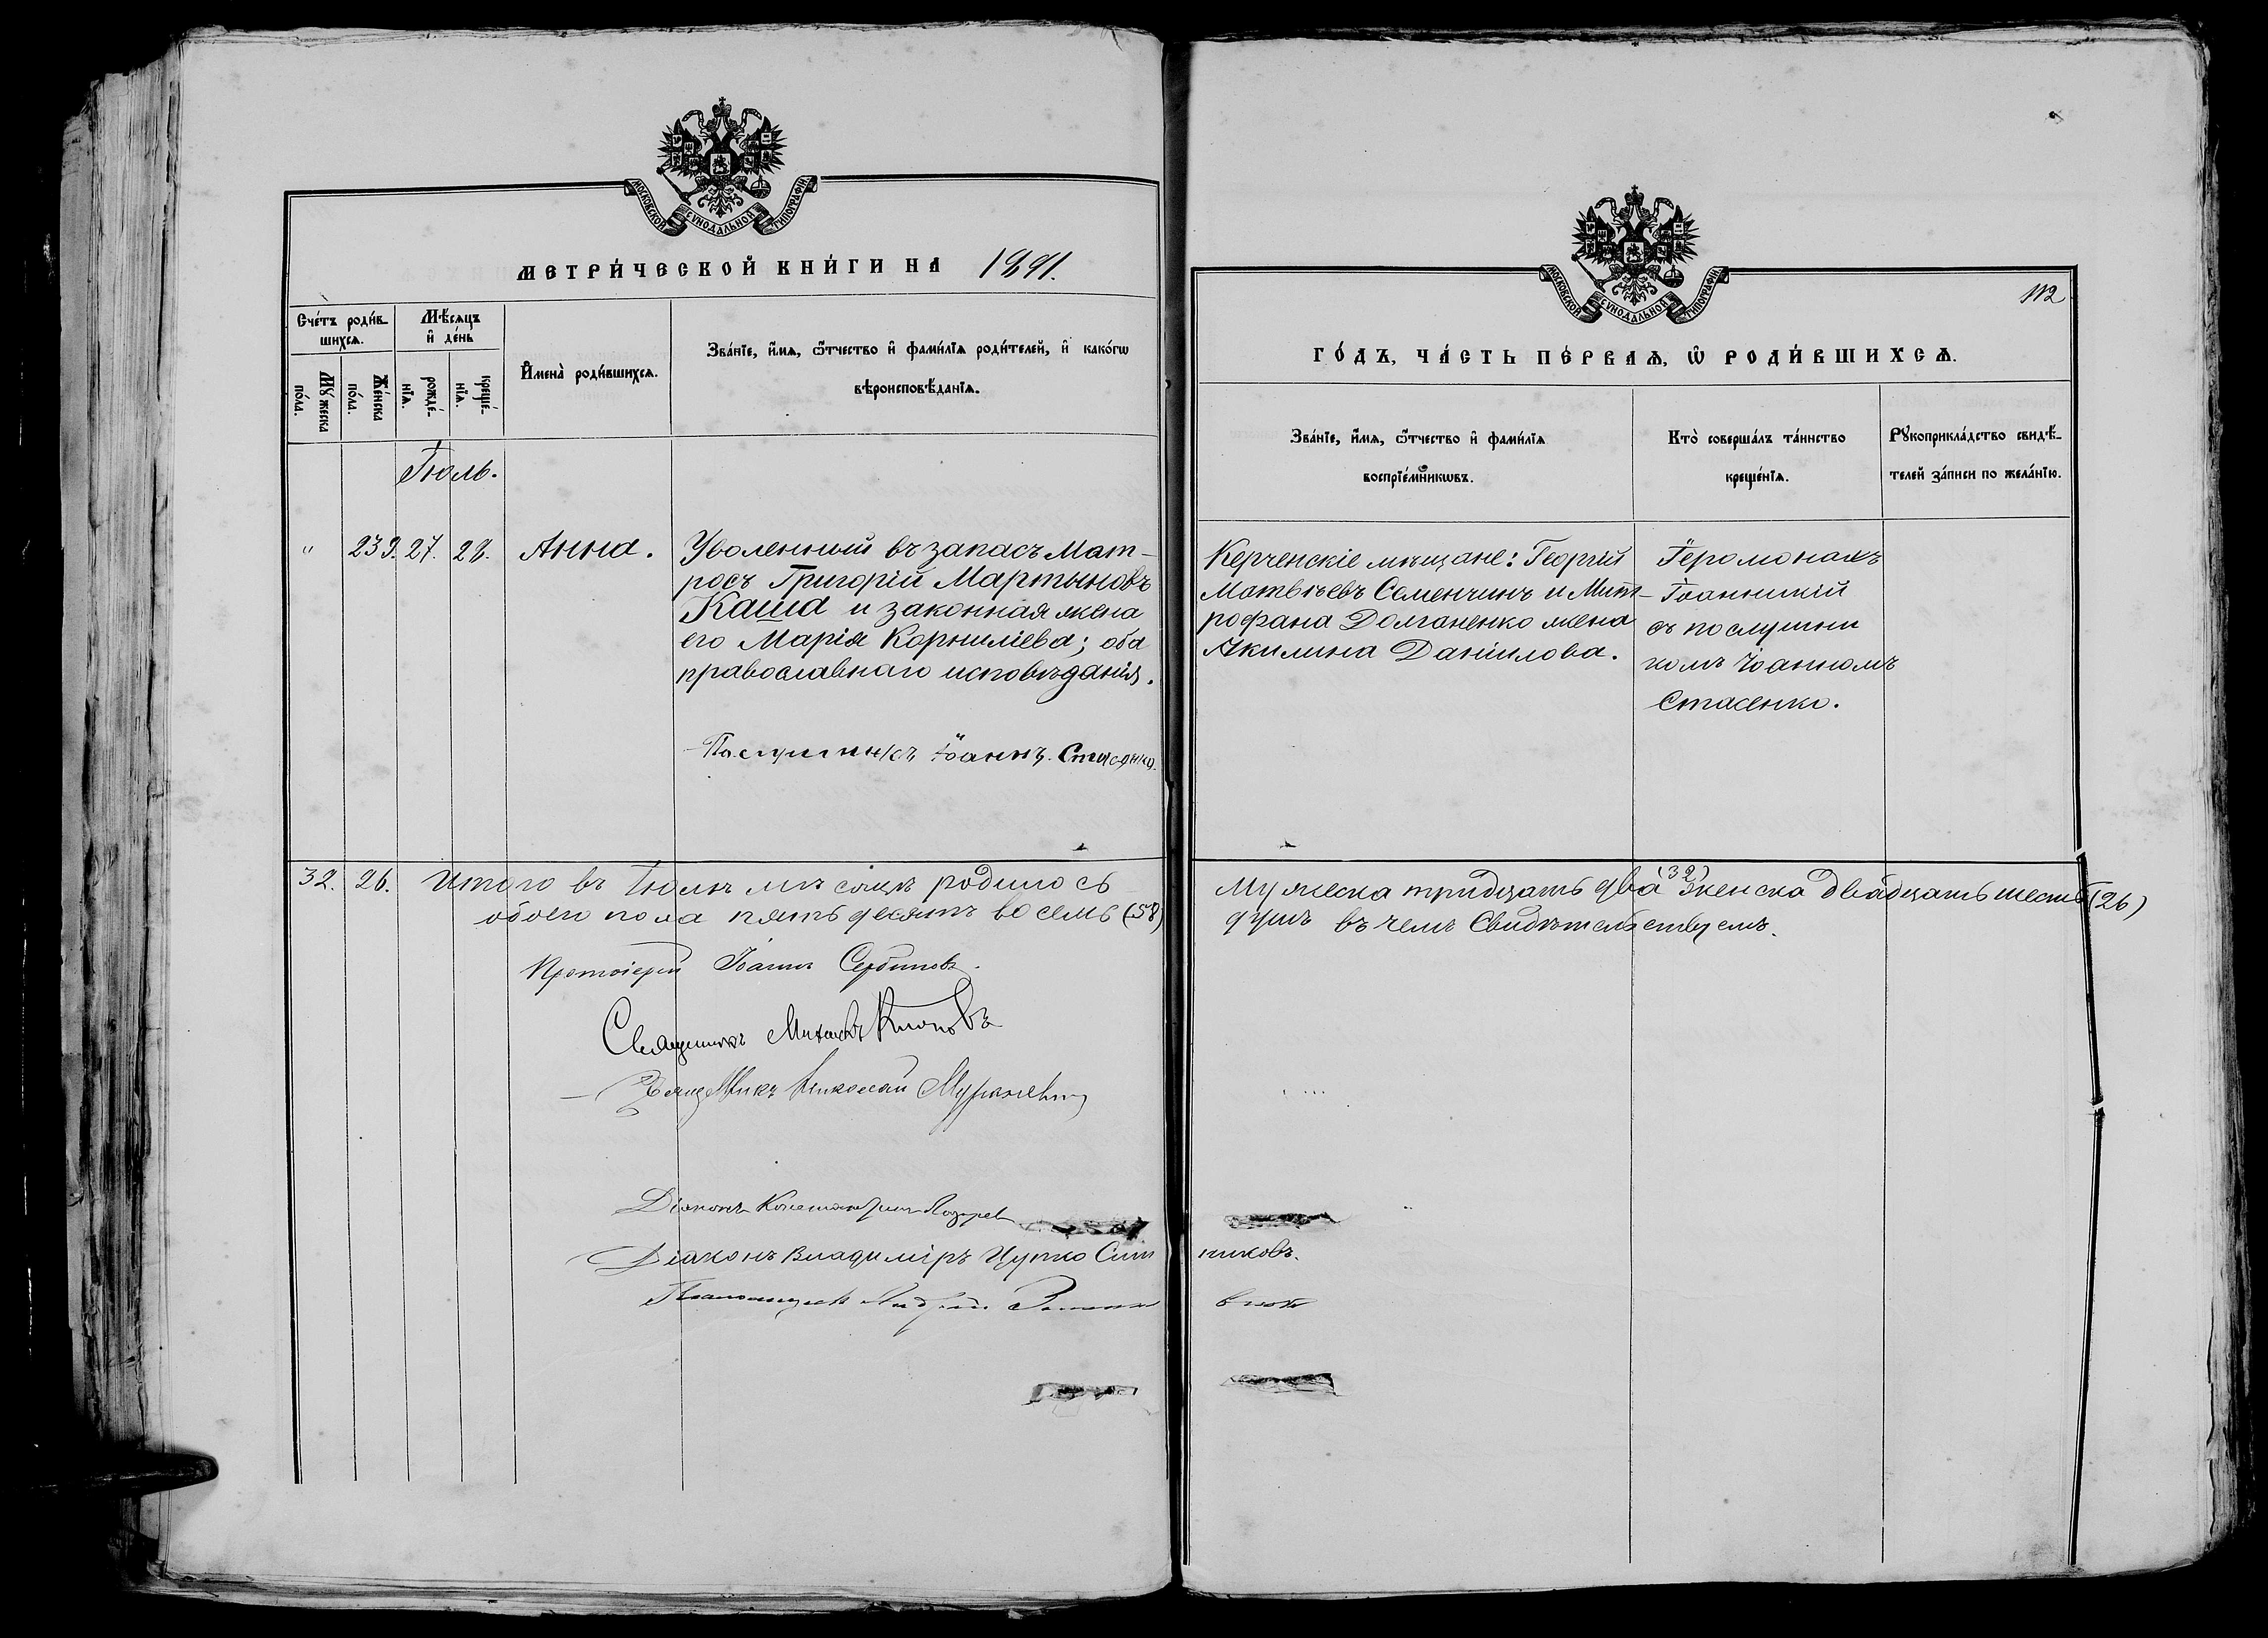 МОСКОВСКОЙ СѴНОДАЛЬНОЙ ТИПОГРАФІИ
МЕТРИ́ЧЕСКОЙ КНИ́ГИ НА 1891.
Сче́тъ роди́в-
шихсѧ.
Мѣ́сѧцъ
и҆ де́нь
Мꙋ́жеска
по́ла.
Же́нска
по́ла.
рожде́-
нїѧ.
креще́-
нїѧ.
И҆мена̀ роди́вшихсѧ.
Зва́нїе, и҆́мѧ, ѻ҆́тчество и҆ фами́лїѧ роди́телей, и҆ како́гѡ
вѣроисповѣ́данїѧ.
Іюль.
" 239. 27. 28. Анна.
Уволенный въ запасъ Мат-
росъ Григорій Мартыновъ
Каша и законная жена
его Марія Корниліева; оба
православнаго исповѣданія.
Послушникъ Іоаннъ Стасенко.
32. 26. Итого въ Іюлѣ мѣсяцѣ родилось
обоего пола пятьдесятъ восемь (58)
Протоіерей Іоаннъ Сербиновъ.
Священникъ Михаилъ Клоповъ
Священникъ Николай
Діаконъ Константинъ
Діаконъ Владиміръ Цупко Сит
МОСКОВСКОЙ СѴНОДАЛЬНОЙ ТИПОГРАФІИ
112
ГО́ДЪ, ЧА́СТЬ ПЕ́РВАѦ, Ѡ҆ РОДИ́ВШИХСѦ.
Зва́нїе, и҆́мѧ, ѻ҆́тчество и҆ фами́лїѧ
воспрїе́мникѡвъ.
Кто̀ соверша́лъ та́инство
креще́нїѧ.
Рꙋкоприкла́дство свидѣ́-
телей за́писи по жела́нїю.
Керченскіе мѣщане: Георгій
Матвѣевъ Семенчинъ и Мит-
рофана Долганенко жена
Акилина Даніилова.
Іеромонахъ
Іоанникій
съ послушни
комъ Іоанномъ
Стасенко.
Мужеска тридцать два (32) женска двадцать шесть (26)
душъ въ чемъ Свидѣтельствуемъ.
никовъ.